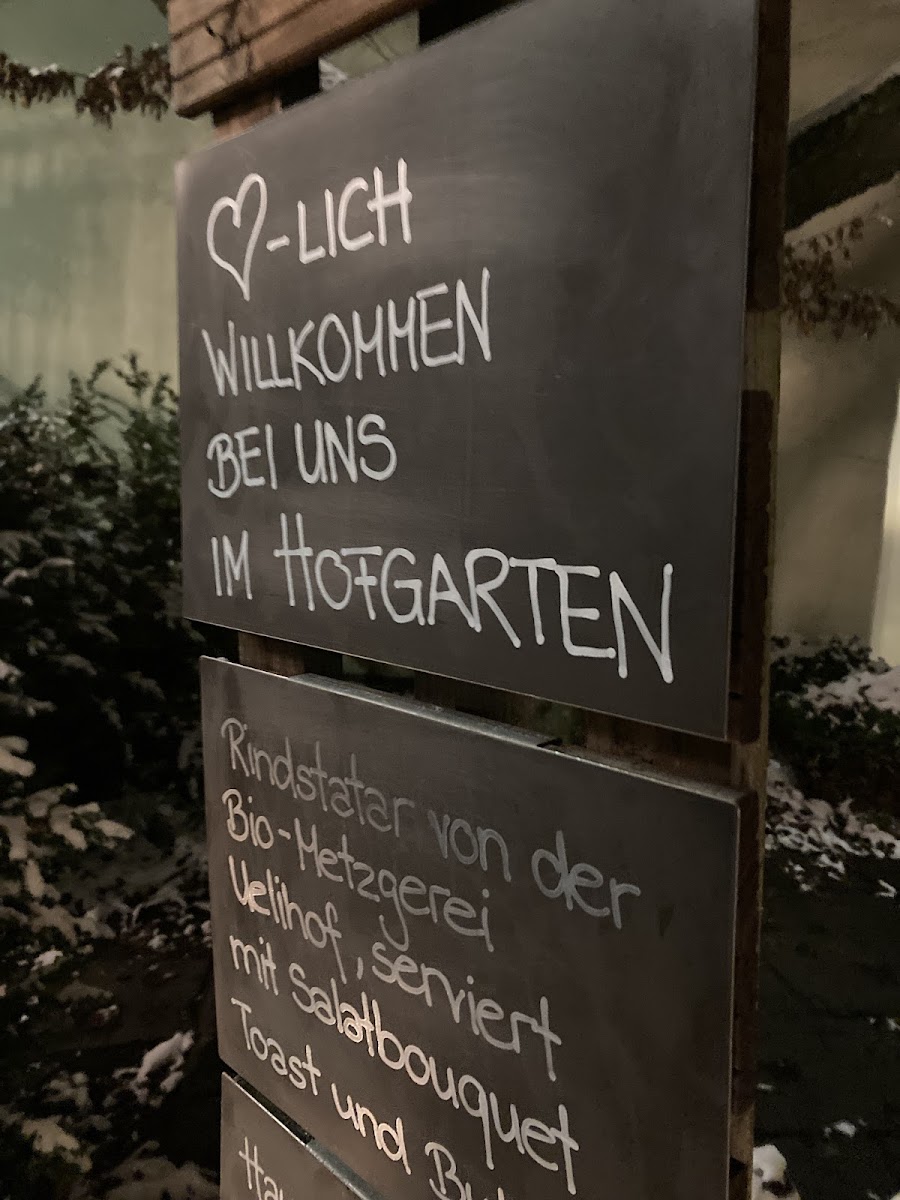 ♡-LICH
WILLKOMMEN
BEI UNS
IM HOFGARTEN
Rindstatar von der
Bio-Metzgerei
Uelihof, serviert
mit Salatbouquet
Toast und